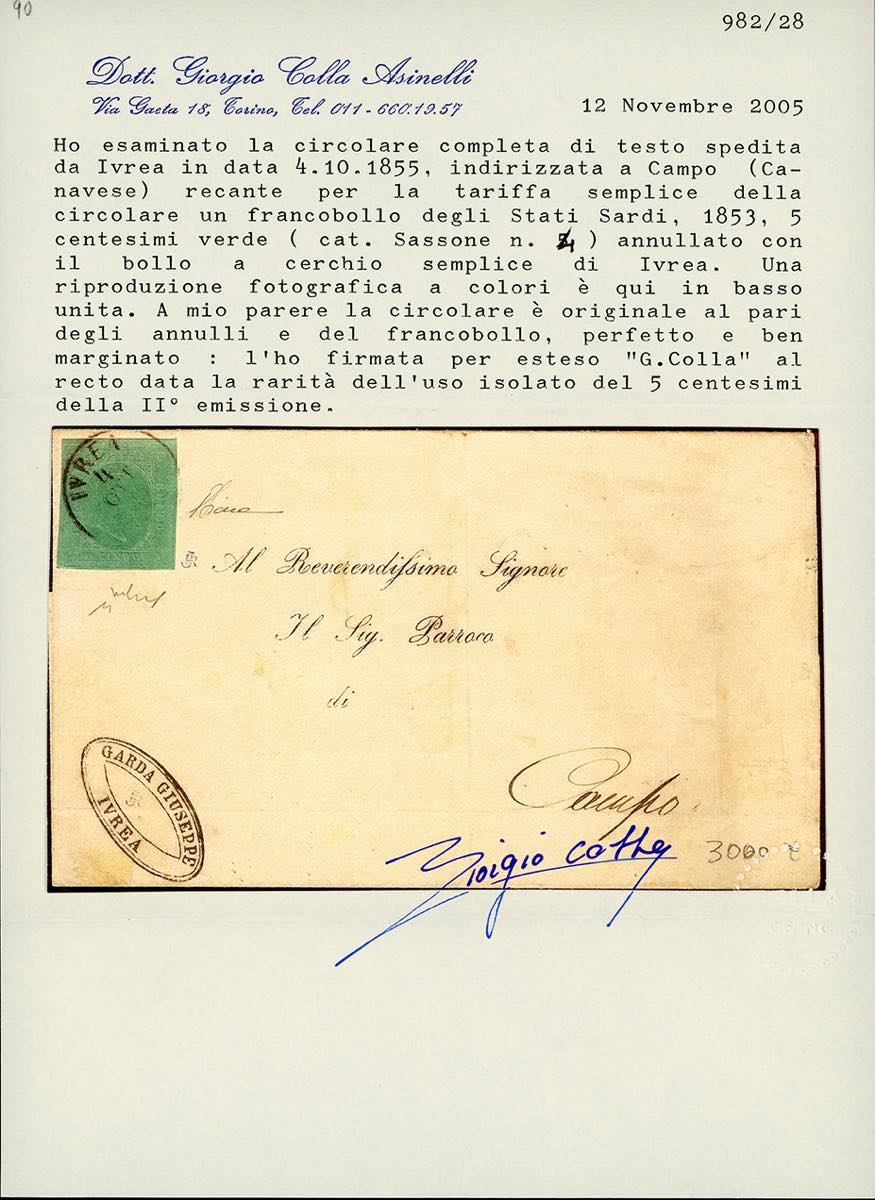 90
982/28
Dott. Giorgio Colla Asinelli
Via Gaeta 18, Torino, Tel. 011-660.19.57
12 Novembre 2005
Ho esaminato la circolare completa di testo spedita
da Ivrea in data 4.10.1855, indirizzata a Campo (Ca-
navese) recante per la tariffa semplice della
circolare un francobollo degli Stati Sardi, 1853, 5
centesimi verde ( cat. Sassone n. 4 ) annullato con
il bollo a cerchio semplice di Ivrea. Una
riproduzione fotografica a colori è qui in basso
unita. A mio parere la circolare è originale al pari
degli annulli e del francobollo, perfetto e ben
marginato : l'ho firmata per esteso "G.Colla" al
recto data la rarità dell'uso isolato del 5 centesimi
della II° emissione.
IVREA
4
Al Reverendissimo Signore
Il Sig. Parroco
di
Campo
GARDA GIUSEPPE
IVREA
Giorgio Colla
3000